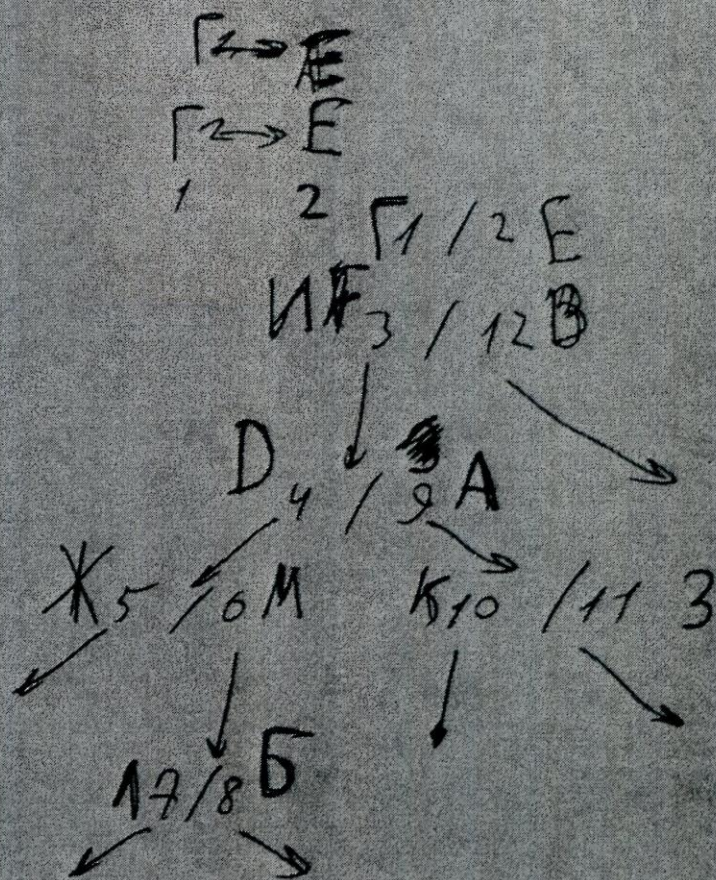 Г2→Е
Г2→Е
1 2
Г1 / 2 Е
И 3 / 12 В
D 4 / 9 А
Ж 5 / 6 М К10 / 11 З
17/8 Б